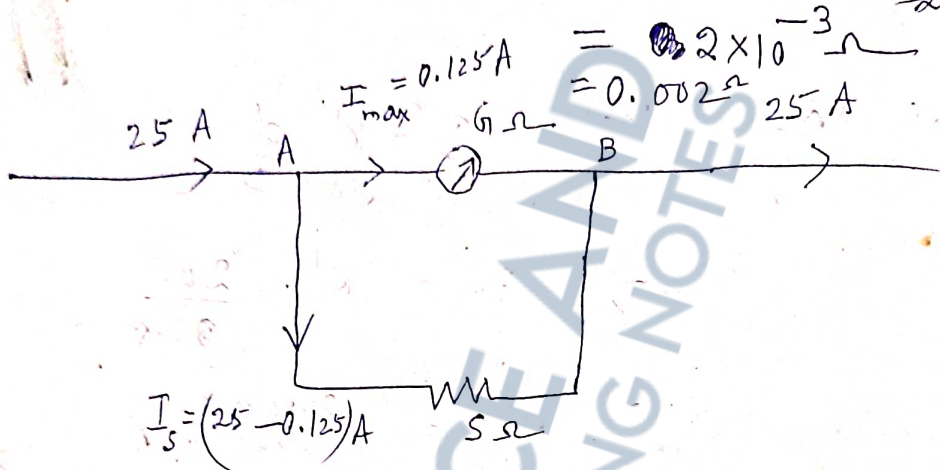 = 2×10⁻³ Ω
= 0.002 Ω
I_max = 0.125 A
25 A
A
G Ω
B
25 A
I_s = (25 – 0.125) A
S Ω
CE AND
NG NOTES